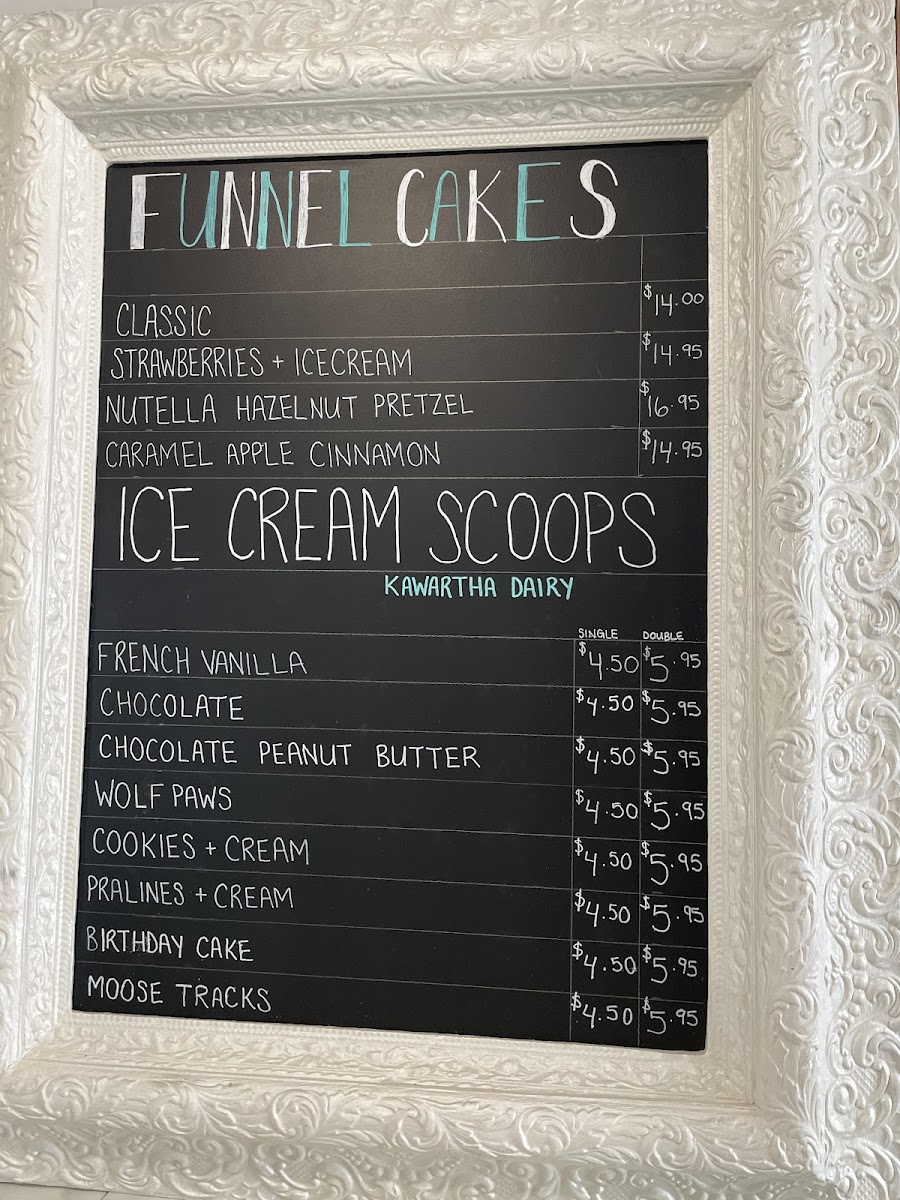 FUNNEL CAKES
CLASSIC $14.00
STRAWBERRIES + ICECREAM $14.95
NUTELLA HAZELNUT PRETZEL $16.95
CARAMEL APPLE CINNAMON $14.95
ICE CREAM SCOOPS
KAWARTHA DAIRY
SINGLE DOUBLE
FRENCH VANILLA $4.50 $5.95
CHOCOLATE $4.50 $5.95
CHOCOLATE PEANUT BUTTER $4.50 $5.95
WOLF PAWS $4.50 $5.95
COOKIES + CREAM $4.50 $5.95
PRALINES + CREAM $4.50 $5.95
BIRTHDAY CAKE $4.50 $5.95
MOOSE TRACKS $4.50 $5.95